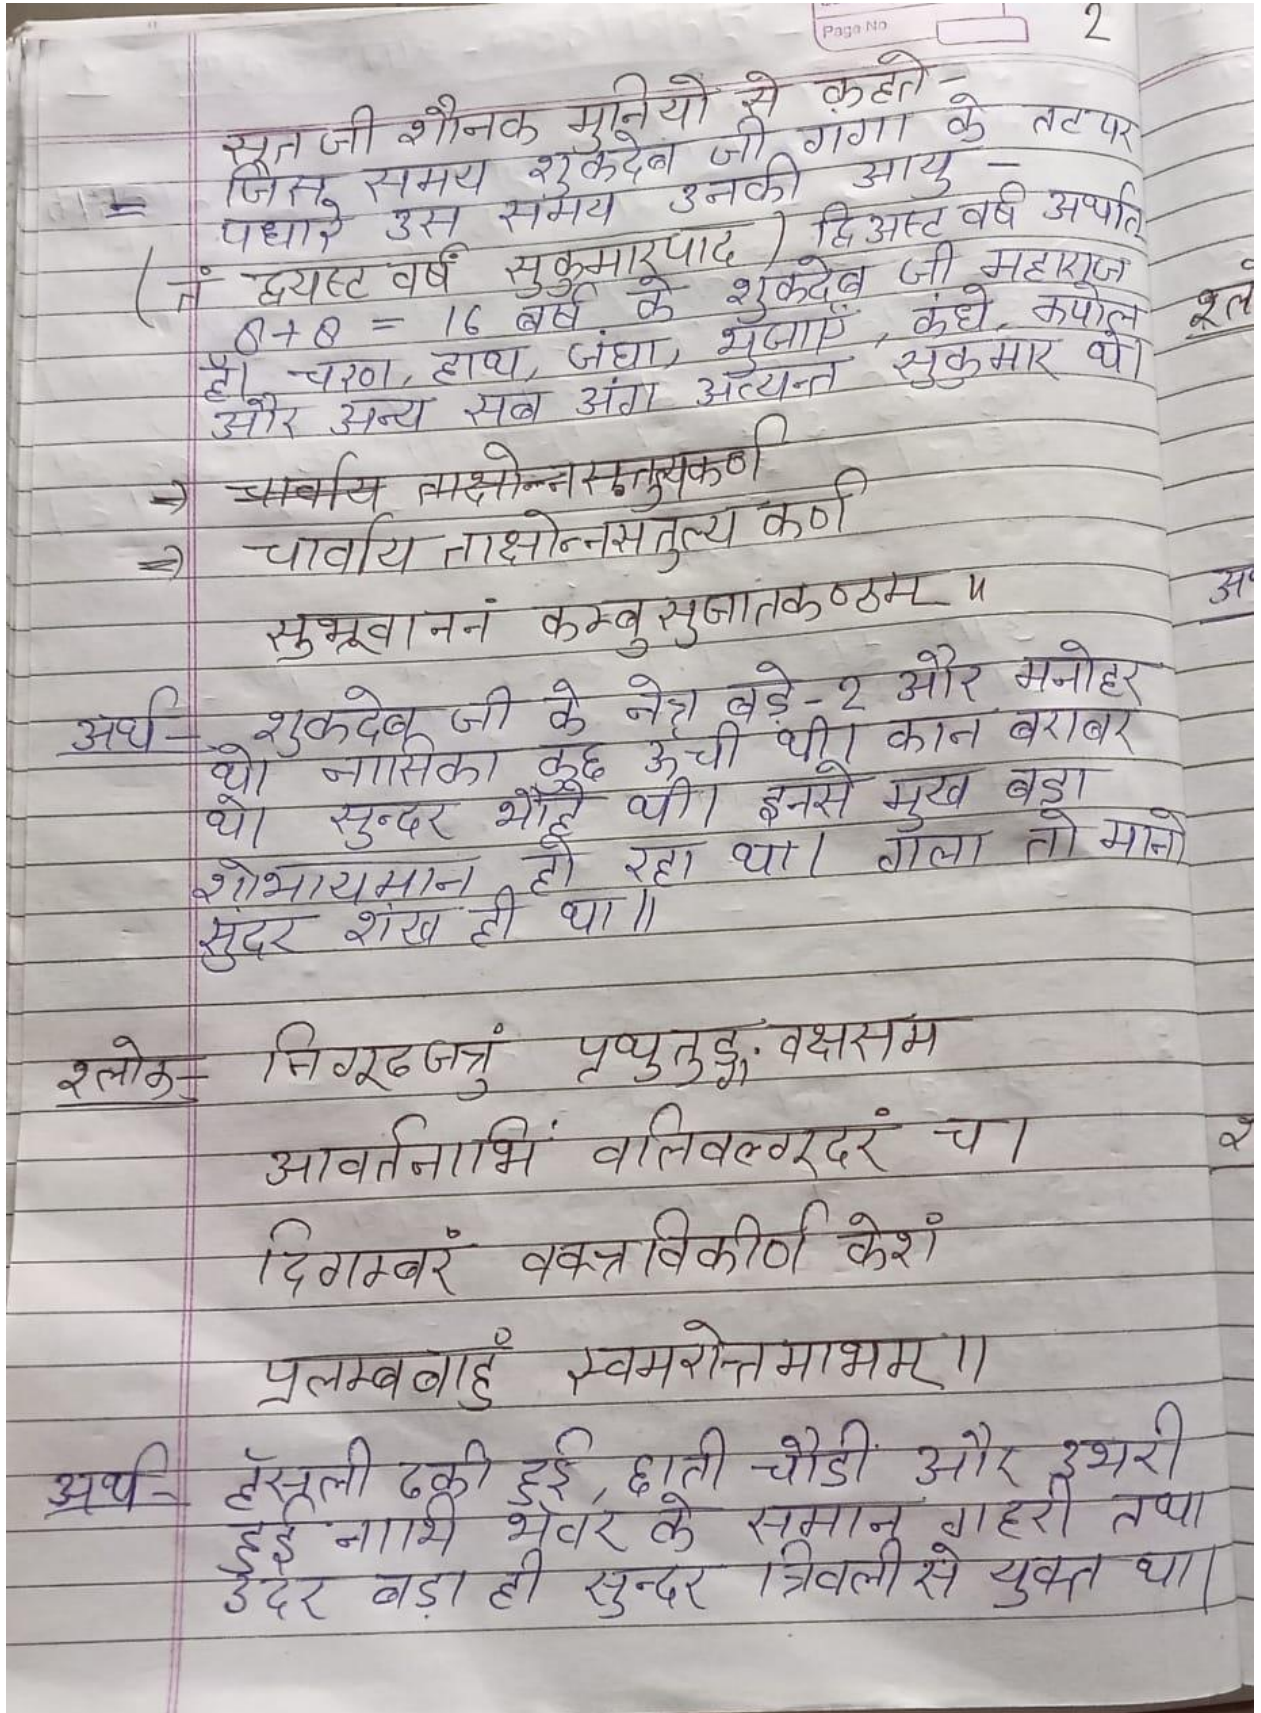 Page No
2
सूत जी शौनक मुनियों से कहते -
जिस समय शुकदेव जी गंगा के तट पर
पधारे उस समय उनकी आयु -
( तं द्वयष्ट वर्षं सुकुमारपाद ) द्वि अष्ट वर्ष अर्थात्
8+8 = 16 वर्ष के शुकदेव जी महाराज
है। चरण, हाथ, जंघा, भुजाएँ, कंधे, कपोल
और अन्य सब अंग अत्यन्त सुकुमार थे।
→ चार्वाय ताक्षोन्नसतुल्यकर्ण
⇒ चार्वाय ताक्षोन्नसतुल्य कर्ण
सुभ्रूवाननं कम्बुसुजातकण्ठम् ॥
अर्थ - शुकदेव जी के नेत्र बड़े-2 और मनोहर
थे। नासिका कुछ ऊंची थी। कान बराबर
थे। सुन्दर भौंहे थी। इनसे मुख बड़ा
शोभायमान हो रहा था। गला तो मानो
सुंदर शंख ही था॥
श्लोक - निगूढजत्रुं पृथुतुङ्ग वक्षसम
आवर्तनाभिं वलिवल्गूदरं च।
दिगम्बरं वक्त्रविकीर्ण केशं
प्रलम्बबाहुं स्वमरोत्तमाभम्॥
अर्थ - हँसूली ढकी हुई, छाती चौडी और उभरी
हुई नाभि भँवर के समान गहरी तथा
उदर बड़ा ही सुन्दर त्रिवली से युक्त था।